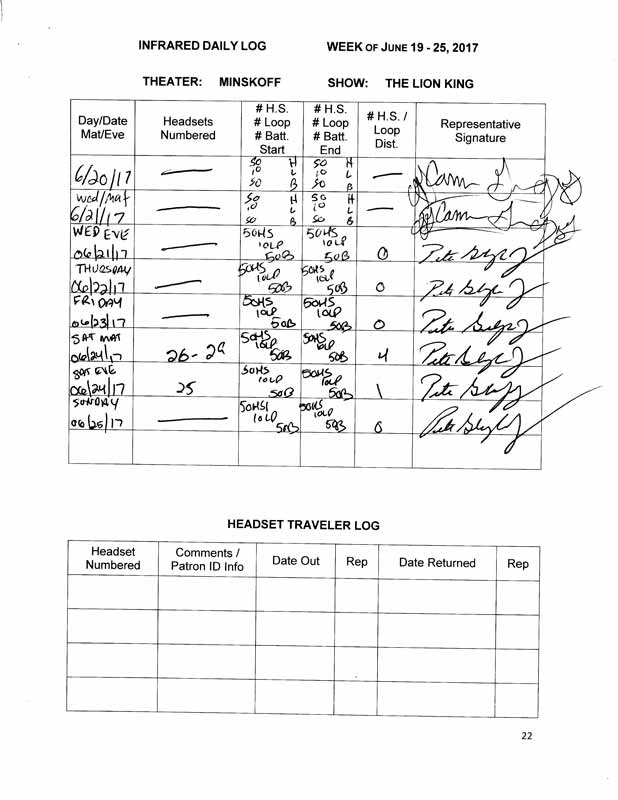 INFRARED DAILY LOG WEEK OF JUNE 19 - 25, 2017
THEATER: MINSKOFF SHOW: THE LION KING
Day/Date Mat/Eve Headsets Numbered # H.S. # Loop # Batt. Start # H.S. # Loop # Batt. End # H.S. / Loop Dist. Representative Signature
6/20/17 — 50 H 10 L 50 B 50 H 10 L 50 B —
Wed/Mat 6/21/17 — 50 H 10 L 50 B 50 H 10 L 50 B —
WED EVE 06/21/17 — 50HS 10LP 50B 50HS 10LP 50B 0 Pete
THURSDAY 06/22/17 — 50HS 10LP 50B 50HS 10LP 50B 0 Pete
FRIDAY 06/23/17 — 50HS 10LP 50B 50HS 10LP 50B 0 Pete
SAT MAT 06/24/17 26-29 50HS 10LP 50B 50HS 10LP 50B 4 Pete
SAT EVE 06/24/17 25 50HS 10LP 50B 50HS 10LP 50B 1 Pete
SUNDAY 06/25/17 — 50HS 10LP 50B 50HS 10LP 50B 0 Pete
HEADSET TRAVELER LOG
Headset Numbered Comments / Patron ID Info Date Out Rep Date Returned Rep
22